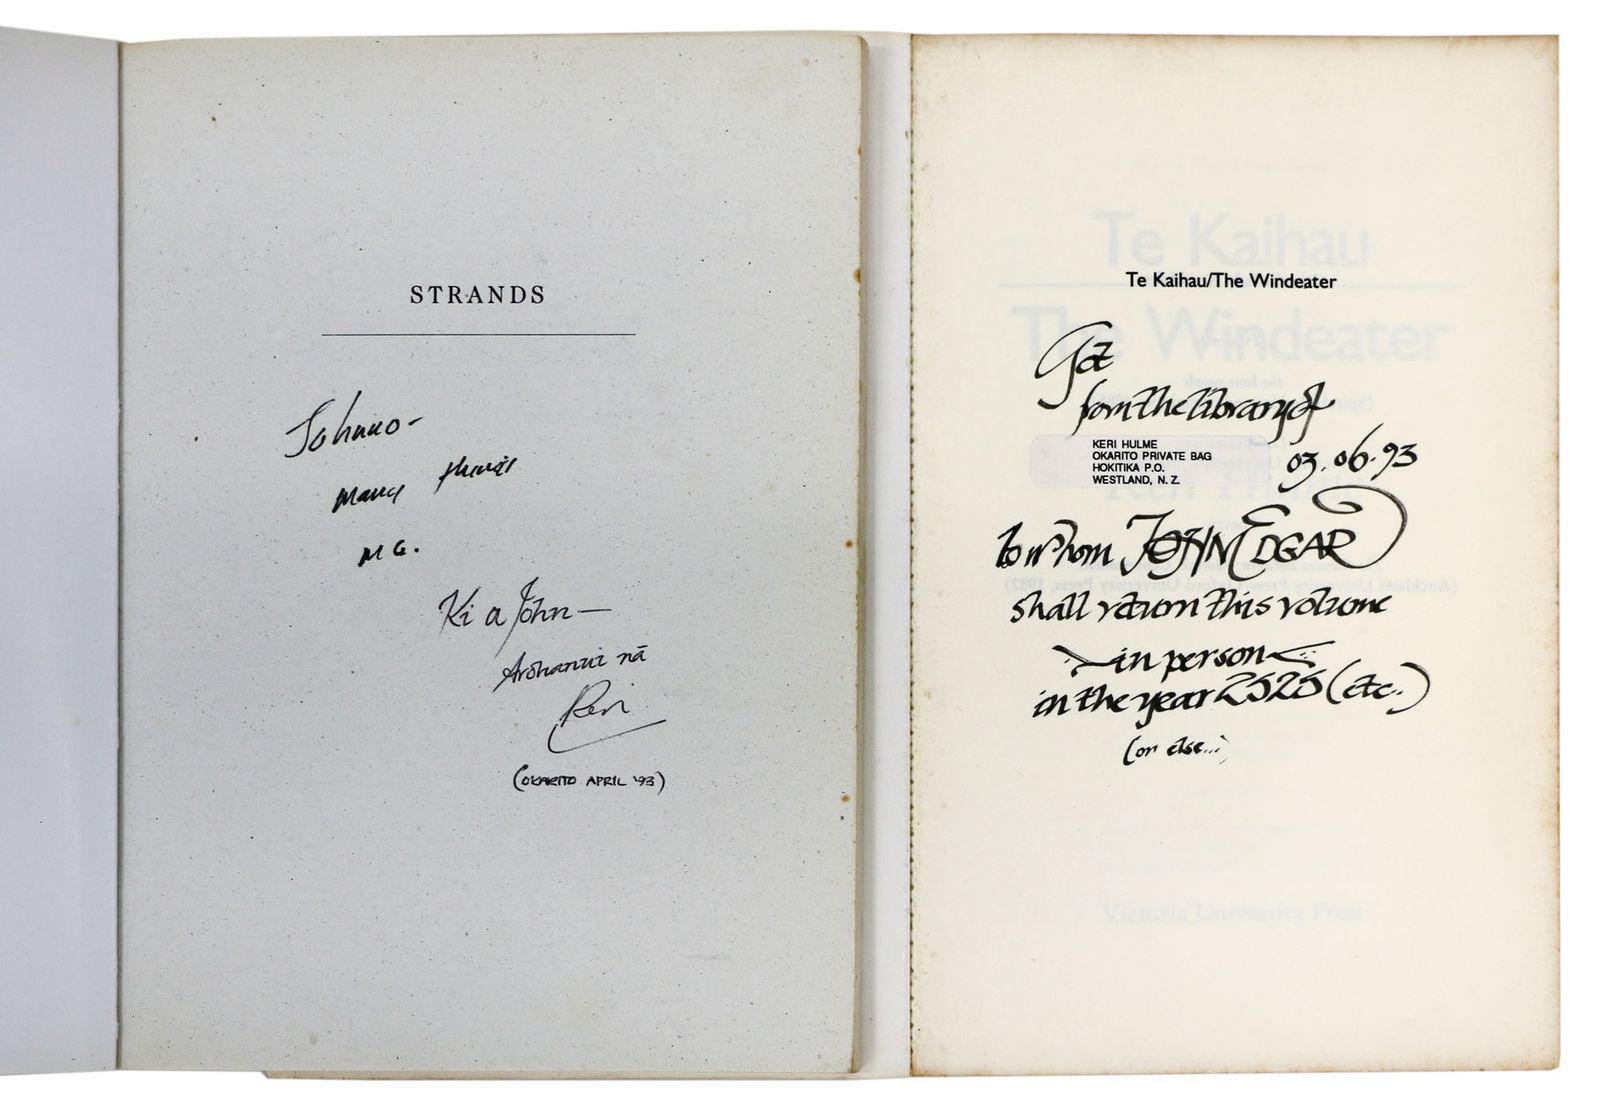 STRANDS
Johnno-
many thanks
M G.
Ki a John—
Arohanui nā
Keri
(OKARITO APRIL '93)
Te Kaihau
Te Kaihau/The Windeater
The Windeater
Got
from the library of
KERI HULME
OKARITO PRIVATE BAG
HOKITIKA P.O.
WESTLAND, N. Z.
03.06.93
to whom JOHN EDGAR
shall return this volume
in person
in the year 2525 (etc.)
(or else...)
Victoria University Press